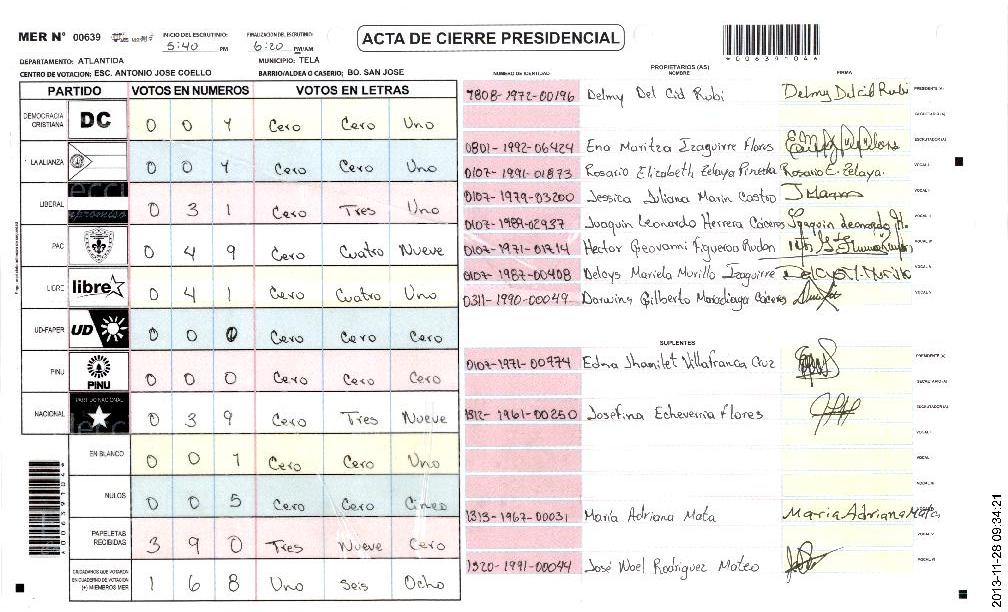 MER N° 00639
INICIO DEL ESCRUTINIO: 5:40 PM
FINALIZACION DEL ESCRUTINIO: 6:20 PM/AM
ACTA DE CIERRE PRESIDENCIAL
*00639104*
DEPARTAMENTO: ATLANTIDA
MUNICIPIO: TELA
CENTRO DE VOTACION: ESC. ANTONIO JOSE COELLO
BARRIO/ALDEA O CASERIO: BO. SAN JOSE
PARTIDO VOTOS EN NUMEROS VOTOS EN LETRAS
DEMOCRACIA CRISTIANA DC 0 0 1 Cero Cero Uno
LA ALIANZA 0 0 1 Cero Cero Uno
LIBERAL 0 3 1 Cero Tres Uno
PAC 0 4 9 Cero Cuatro Nueve
LIBRE libre 0 4 1 Cero Cuatro Uno
UD-FAPER UD 0 0 0 Cero Cero Cero
PINU PINU 0 0 0 Cero Cero Cero
NACIONAL PARTIDO NACIONAL 0 3 9 Cero Tres Nueve
EN BLANCO 0 0 1 Cero Cero Uno
NULOS 0 0 5 Cero Cero Cinco
PAPELETAS RECIBIDAS 3 9 0 Tres Nueve Cero
CIUDADANOS QUE VOTARON EN CUADERNO DE VOTACION (+) MIEMBROS MER 1 6 8 Uno Seis Ocho
PROPIETARIOS (AS)
NUMERO DE IDENTIDAD NOMBRE FIRMA
1808-1972-00196 Delmy Del Cid Rubi Delmy Del Cid Rubi PRESIDENTE (A)
SECRETARIO (A)
0801-1992-06424 Ena Maritza Izaguirre Flores ESCRUTADOR (A)
0107-1991-01873 Rosario Elizabeth Zelaya Pineda Rosario E. Zelaya. VOCAL I
0107-1979-03200 Jessica Iliana Marin Castro J Marin VOCAL
0107-1989-02937 Joaquin Leonardo Herrera Cáceres Joaquin Leonardo H. VOCAL
0107-1971-01714 Hector Geovanni Figueroa VOCAL
0107-1987-00408 Delcys Mariela Murillo Izaguirre Delcys M. Murillo VOCAL
0311-1990-00049 Darwins Gilberto Maradiaga Cáceres VOCAL
SUPLENTES
0107-1971-00774 Edma Jhamilet Villafranca Cruz PRESIDENTE (A)
SECRETARIO (A)
1312-1961-00250 Josefina Echeverria Flores ESCRUTADOR (A)
VOCAL I
VOCAL
VOCAL
1313-1967-00031 María Adriana Mata María Adriana Mata
VOCAL
1520-1991-00044 José Noel Rodriguez Mateo VOCAL
2013-11-28 09:34:21